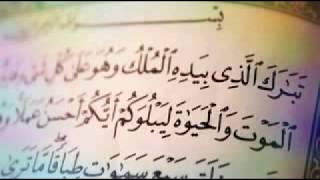 بِسْمِ
تَبَٰرَكَ ٱلَّذِى بِيَدِهِ ٱلْمُلْكُ وَهُوَ عَلَىٰ كُلِّ شَىْءٍ
ٱلْمَوْتَ وَٱلْحَيَوٰةَ لِيَبْلُوَكُمْ أَيُّكُمْ أَحْسَنُ عَمَلًا وَ
سَبْعَ سَمَٰوَٰتٍ طِبَاقًا مَّا تَرَىٰ